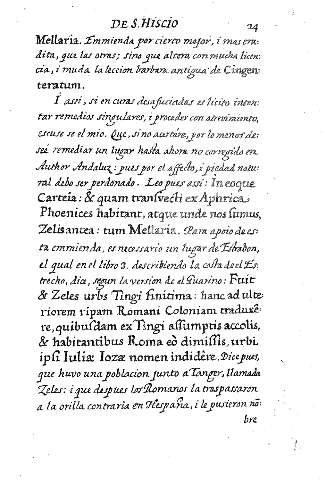 DE S. HISCIO 24
Mellaria. Emmienda por cierto mejor, i mas eru-
dita, que las otras; sino que altera con mucha licen-
cia, i muda la leccion barbara antigua de Cingen-
teratum.
I assi, si en curas desafuciadas es licito inten-
tar remedios singulares, i proceder con atrevimiento,
escuse se el mio. Que, si no acertàre, por lo menos de-
seè remediar un lugar hasta ahora no corregido en
Author Andaluz: pues por el affecto, i piedad natu-
ral debo ser perdonado. Leo pues assi: In eoque
Carteia: & quam transvecti ex Aphrica
Phoenices habitant, atque unde nos sumus,
Zelisancea: tum Mellaria. Para apoio de es-
ta emmienda, es necessario un lugar de Estrabon,
el qual en el libro 3. describiendo la costa de el Es-
trecho, dize, segun la version de el Guarino: Fuit
& Zeles urbs Tingi finitima: hanc ad ulte-
riorem ripam Romani Coloniam traduxe-
re, quibusdam ex Tingi assumptis accolis,
& habitantibus Roma eò dimissis, urbi
ipsi Iuliæ Iozæ nomen indidêre. Dice pues,
que huvo una poblacion junto a Tanger, llamada
Zeles: i que despues los Romanos la traspassaron
a la orilla contraria en Hespaña, i le pusieron nõ-
bre